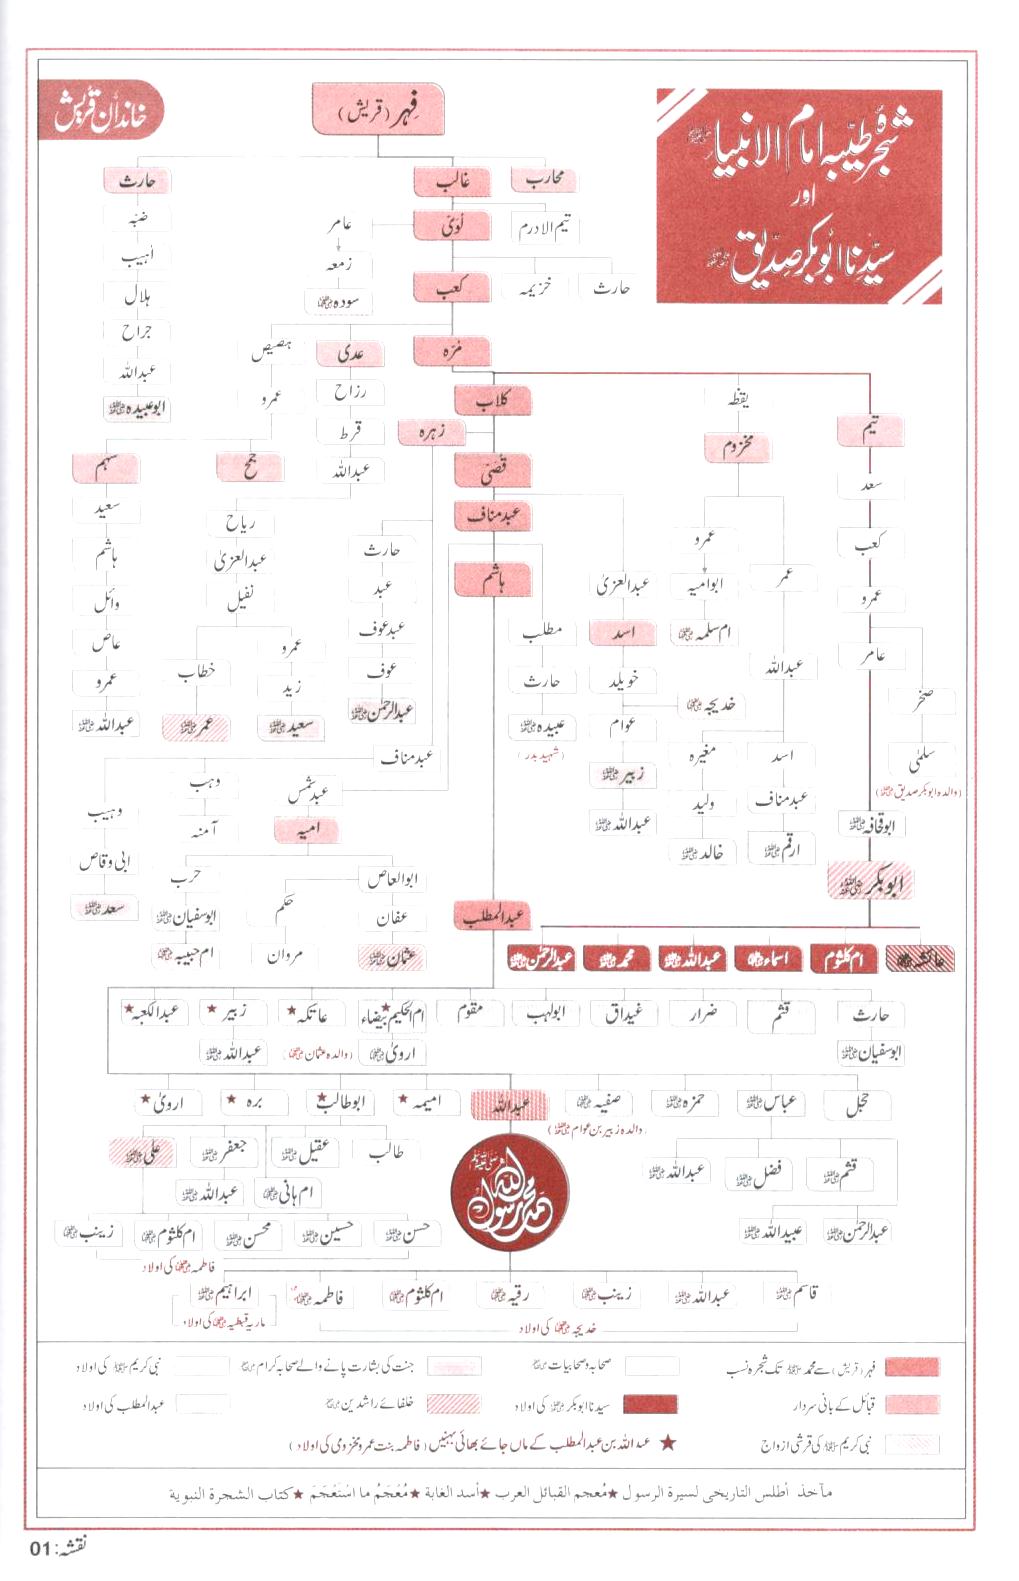 خاندانِ قریش
شجرۂ طیّبہ امام الانبیاء ﷺ
اور
سیّدنا ابوبکر صدیق رضی اللہ عنہ
فِہر (قریش)
حارث غالب محارب
ضبّہ عامر لُوَیّ تیم الادرم
اُہیب زمعہ
ہلال سودہ رضی اللہ عنہا کعب خزیمہ حارث
جراح ہصیص عدی مُرّہ
عبداللہ عمرو رزاح کلاب یقظہ
ابوعبیدہ رضی اللہ عنہ قرط زہرہ مخزوم تیم
سہم جمح عبداللہ قُصَیّ سعد
سعید ریاح عبدمناف
ہاشم عبدالعزیٰ حارث عمرو کعب
وائل نفیل عبد ہاشم عبدالعزیٰ ابوامیہ عمر عمرو
عاص عمرو عبدعوف مطلب اسد ام سلمہ رضی اللہ عنہا عامر
عمرو خطاب زید عوف حارث خویلد عبداللہ
عبداللہ رضی اللہ عنہ عمر رضی اللہ عنہ سعید رضی اللہ عنہ عبدالرحمٰن رضی اللہ عنہ عبیدہ رضی اللہ عنہ عوام خدیجہ رضی اللہ عنہا صخر
(شہید بدر)
عبدمناف مغیرہ اسد سلمیٰ
وہب عبدشمس زبیر رضی اللہ عنہ ولید عبدمناف (والدہ ابوبکر صدیق رضی اللہ عنہ)
وہیب آمنہ امیہ عبداللہ رضی اللہ عنہ خالد رضی اللہ عنہ ارقم رضی اللہ عنہ ابوقحافہ رضی اللہ عنہ
ابی وقاص حرب ابوالعاص ابوبکر رضی اللہ عنہ
سعد رضی اللہ عنہ ابوسفیان رضی اللہ عنہ حکم عفان عبدالمطلب
ام حبیبہ رضی اللہ عنہا مروان عثمان رضی اللہ عنہ عبدالرحمٰن رضی اللہ عنہ محمد عبداللہ رضی اللہ عنہ اسماء رضی اللہ عنہا ام کلثوم عائشہ رضی اللہ عنہا
عبدالکعبہ★ زبیر★ عاتکہ★ ام الحکیم بیضاء★ مقوم ابولہب غیداق ضرار قثم حارث
عبداللہ رضی اللہ عنہ (والدہ عثمان رضی اللہ عنہ) ارویٰ ابوسفیان رضی اللہ عنہ
ارویٰ★ برہ★ ابوطالب★ امیمہ★ عبداللہ صفیہ رضی اللہ عنہا حمزہ رضی اللہ عنہ عباس رضی اللہ عنہ حجل
(والدہ زبیر بن عوام رضی اللہ عنہ)
علی رضی اللہ عنہ جعفر رضی اللہ عنہ عقیل رضی اللہ عنہ طالب محمد رسول اللہ ﷺ عبداللہ رضی اللہ عنہ فضل رضی اللہ عنہ قثم رضی اللہ عنہ
عبداللہ رضی اللہ عنہ ام ہانی رضی اللہ عنہا
زینب رضی اللہ عنہا ام کلثوم رضی اللہ عنہا محسن رضی اللہ عنہ حسین رضی اللہ عنہ حسن رضی اللہ عنہ عبیداللہ رضی اللہ عنہ عبدالرحمٰن رضی اللہ عنہ
فاطمہ رضی اللہ عنہا کی اولاد
ابراہیم رضی اللہ عنہ فاطمہ رضی اللہ عنہا ام کلثوم رضی اللہ عنہا رقیہ رضی اللہ عنہا زینب رضی اللہ عنہا عبداللہ رضی اللہ عنہ قاسم رضی اللہ عنہ
ماریہ قبطیہ رضی اللہ عنہا کی اولاد خدیجہ رضی اللہ عنہا کی اولاد
فہر (قریش) سے محمد ﷺ تک شجرہ نسب صحابہ و صحابیات جنت کی بشارت پانے والے صحابہ کرام نبی کریم ﷺ کی اولاد
قبائل کے بانی سردار سیدنا ابوبکر رضی اللہ عنہ کی اولاد خلفائے راشدین عبدالمطلب کی اولاد
نبی کریم ﷺ کی قرشی ازواج ★ عبداللہ بن عبدالمطلب کے ماں جائے بھائی بہنیں (فاطمہ بنت عمرو مخزومی کی اولاد)
مآخذ أطلس التاريخي لسيرة الرسول ★ مُعجم القبائل العرب ★ أسد الغابة ★ مُعْجَمُ ما اسْتَعْجَمَ ★ كتاب الشجرة النبوية
نقشہ: 01